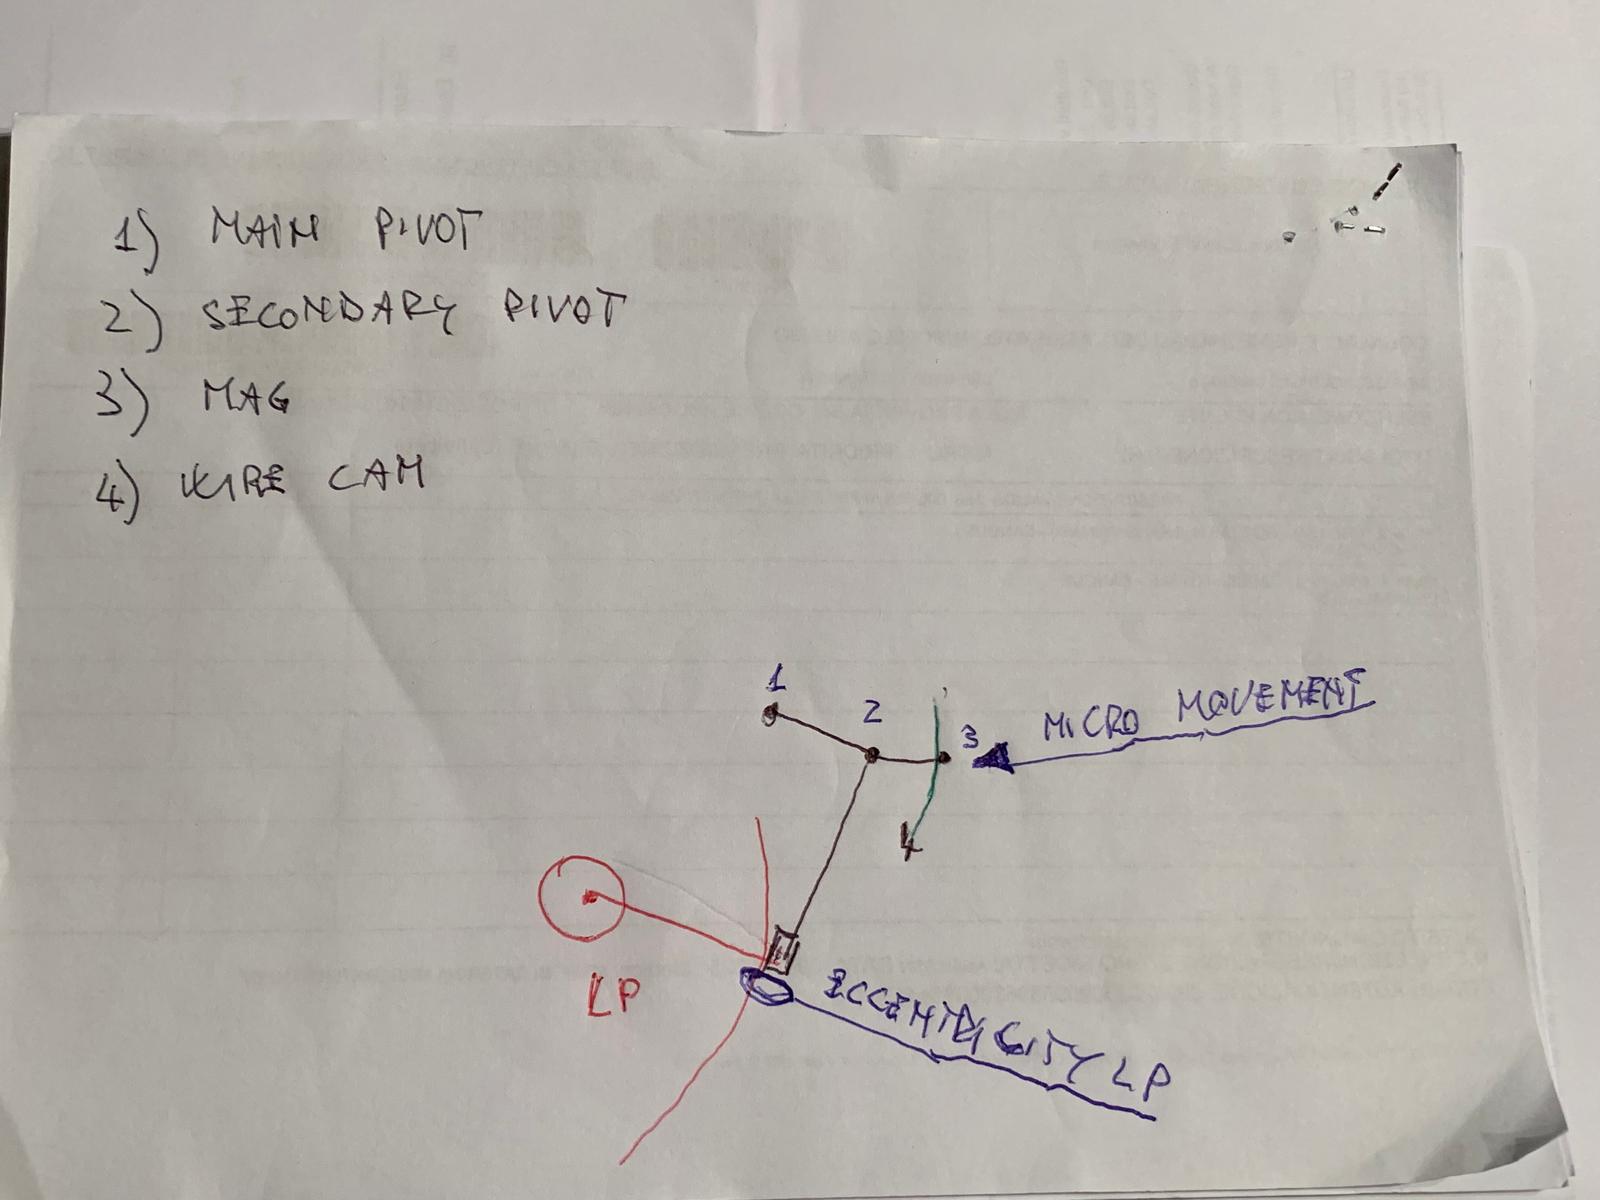 1) MAIN PIVOT
2) SECONDARY PIVOT
3) MAG
4) WIRE CAM
1
2
3
MICRO MOVEMENT
4
LP
ECCENTRICITY LP